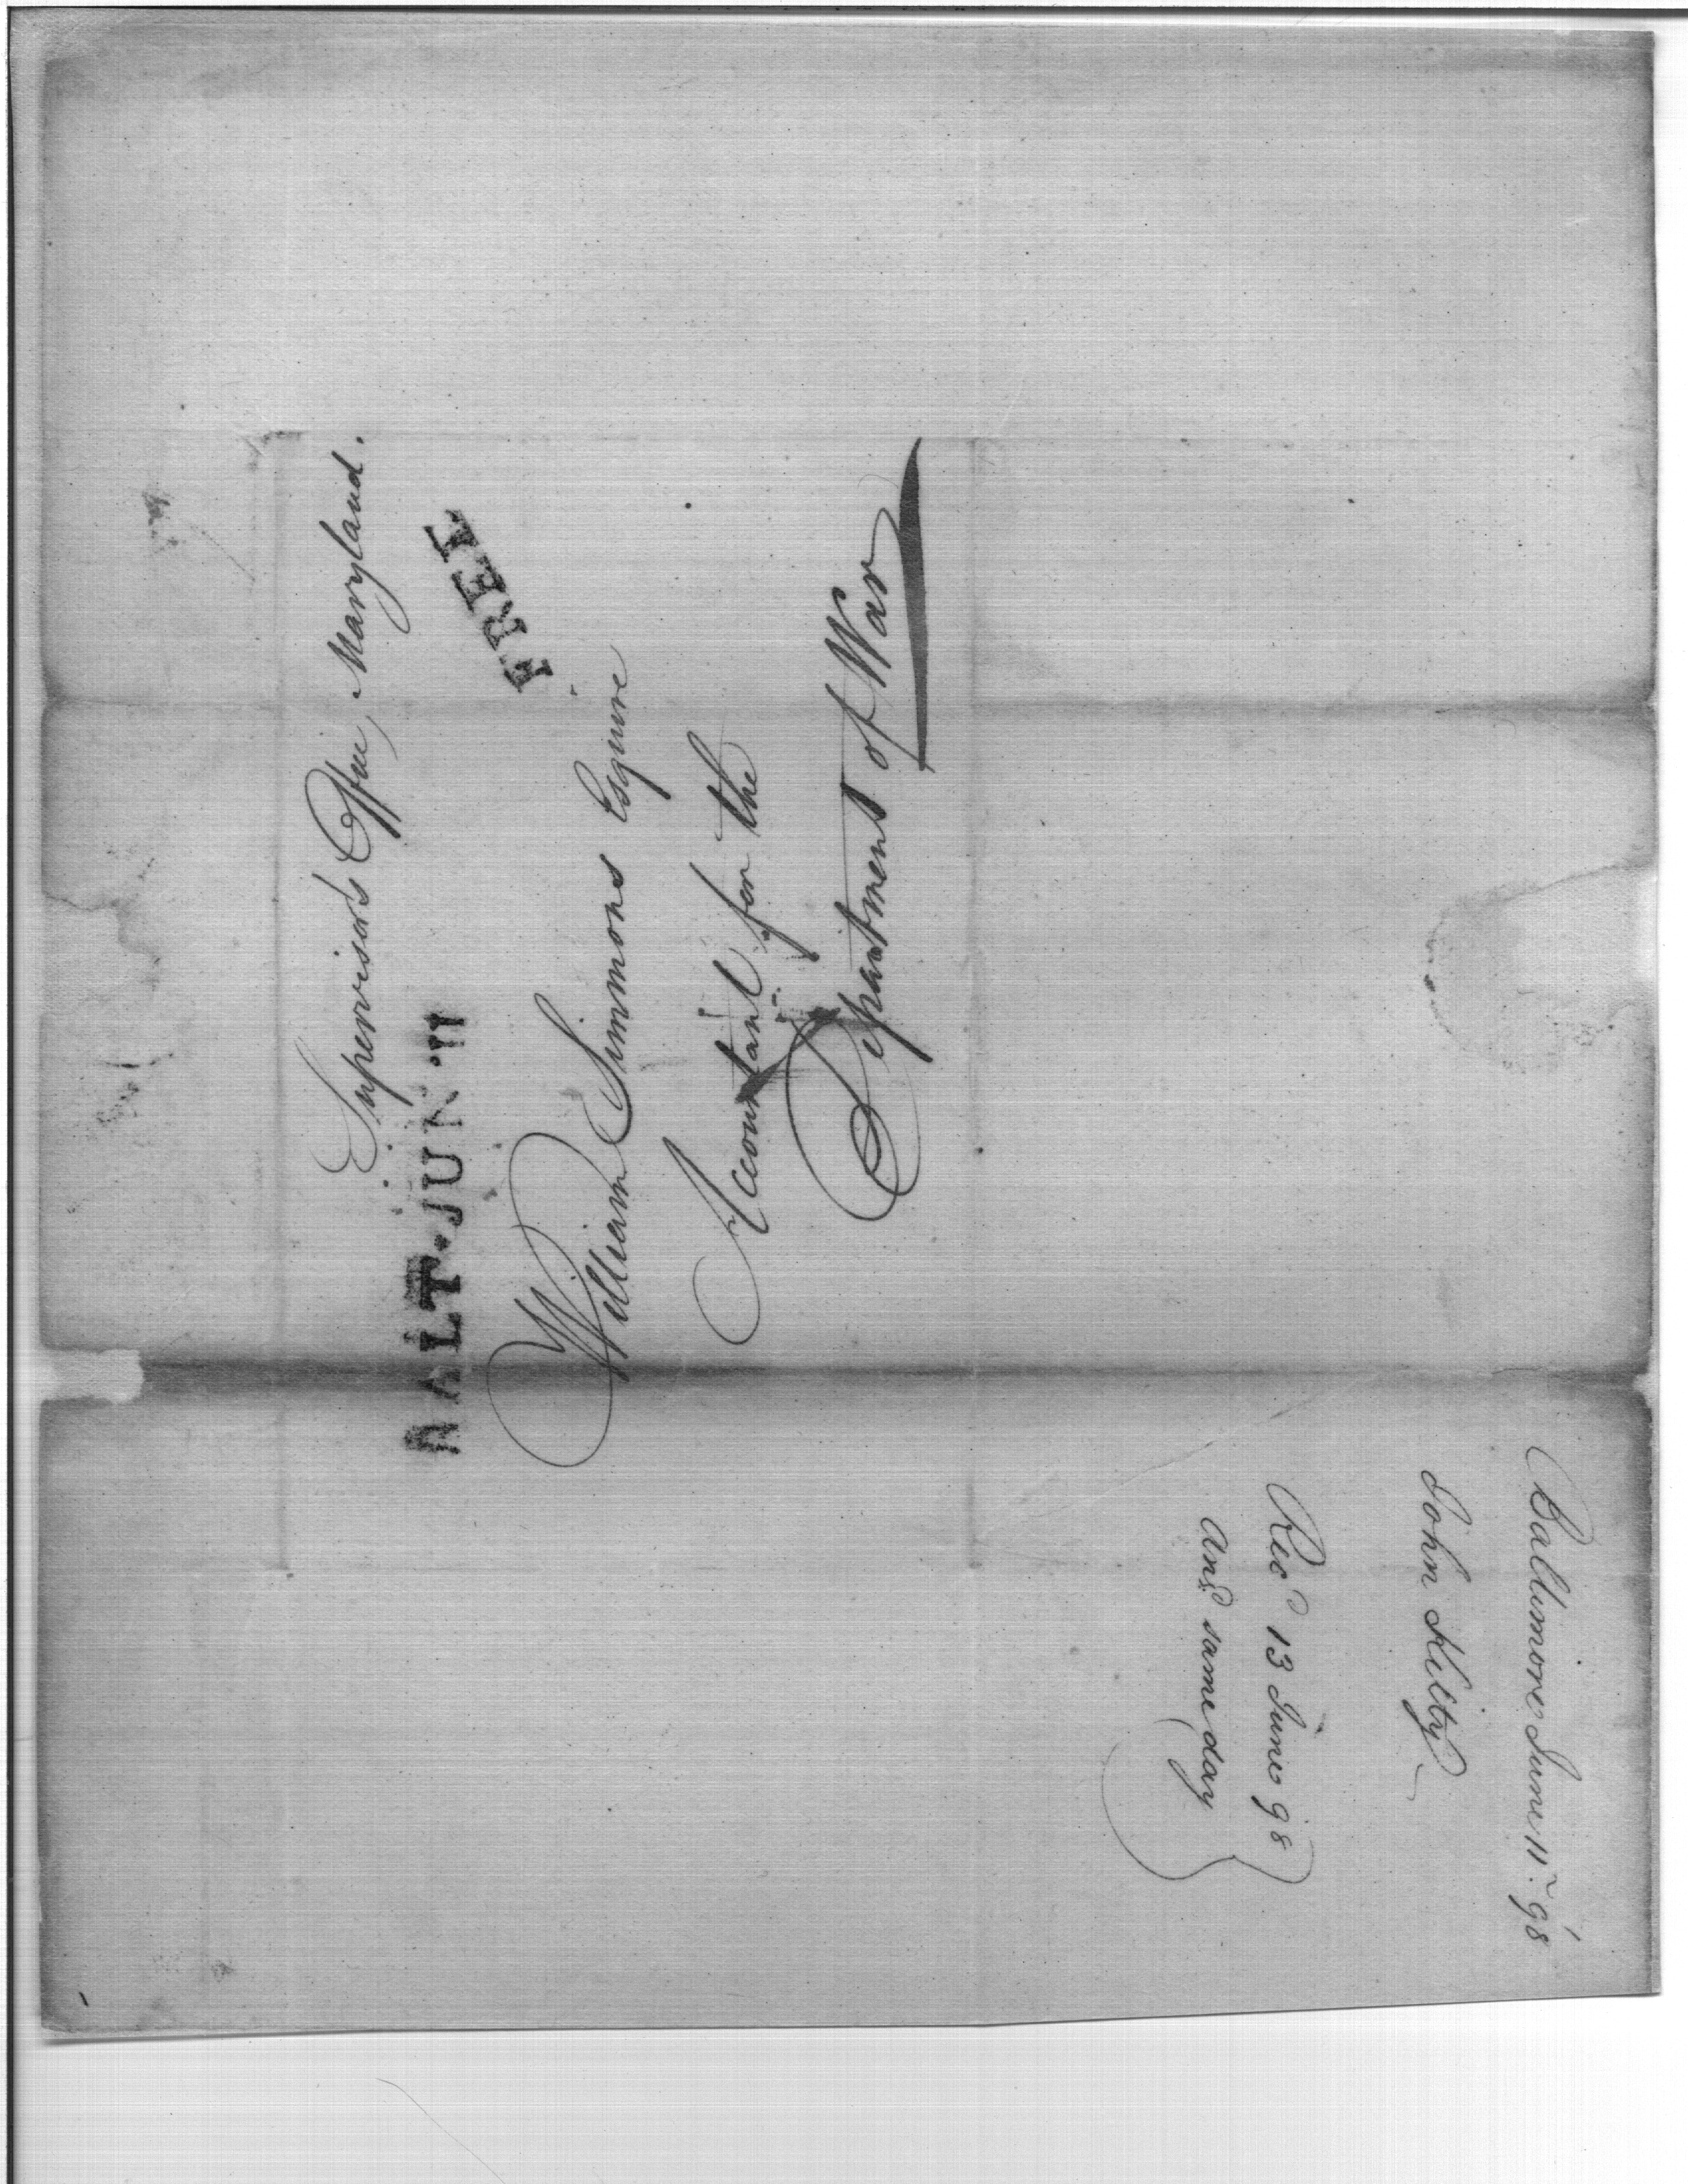 Supervisor's Office, Maryland.
BALT. JUN 11
FREE
William Simmons Esquire
Accountant for the
Department of War
Baltimore June 11th '98
John Kilty
Recd 13 June 98
Ansd same day